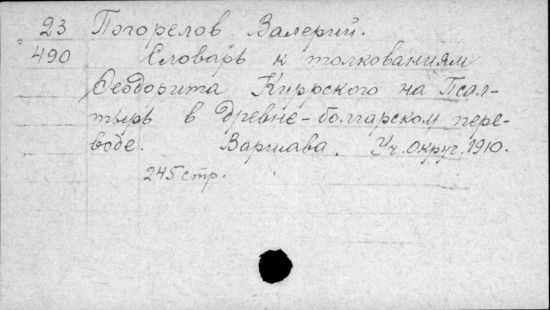 23 Погорелов Валерий.
490 Словарь к толкованиям
Феодорита Киррского на Псал-
тырь в древне-болгарском пере-
воде. Варшава. Уч. Округ. 1910.
245 стр.